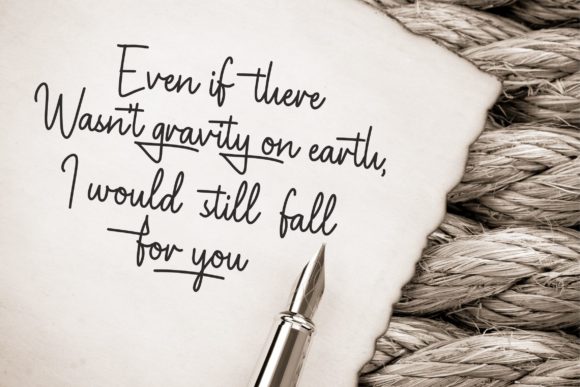 Even if there
Wasn't gravity on earth,
I would still fall
for you